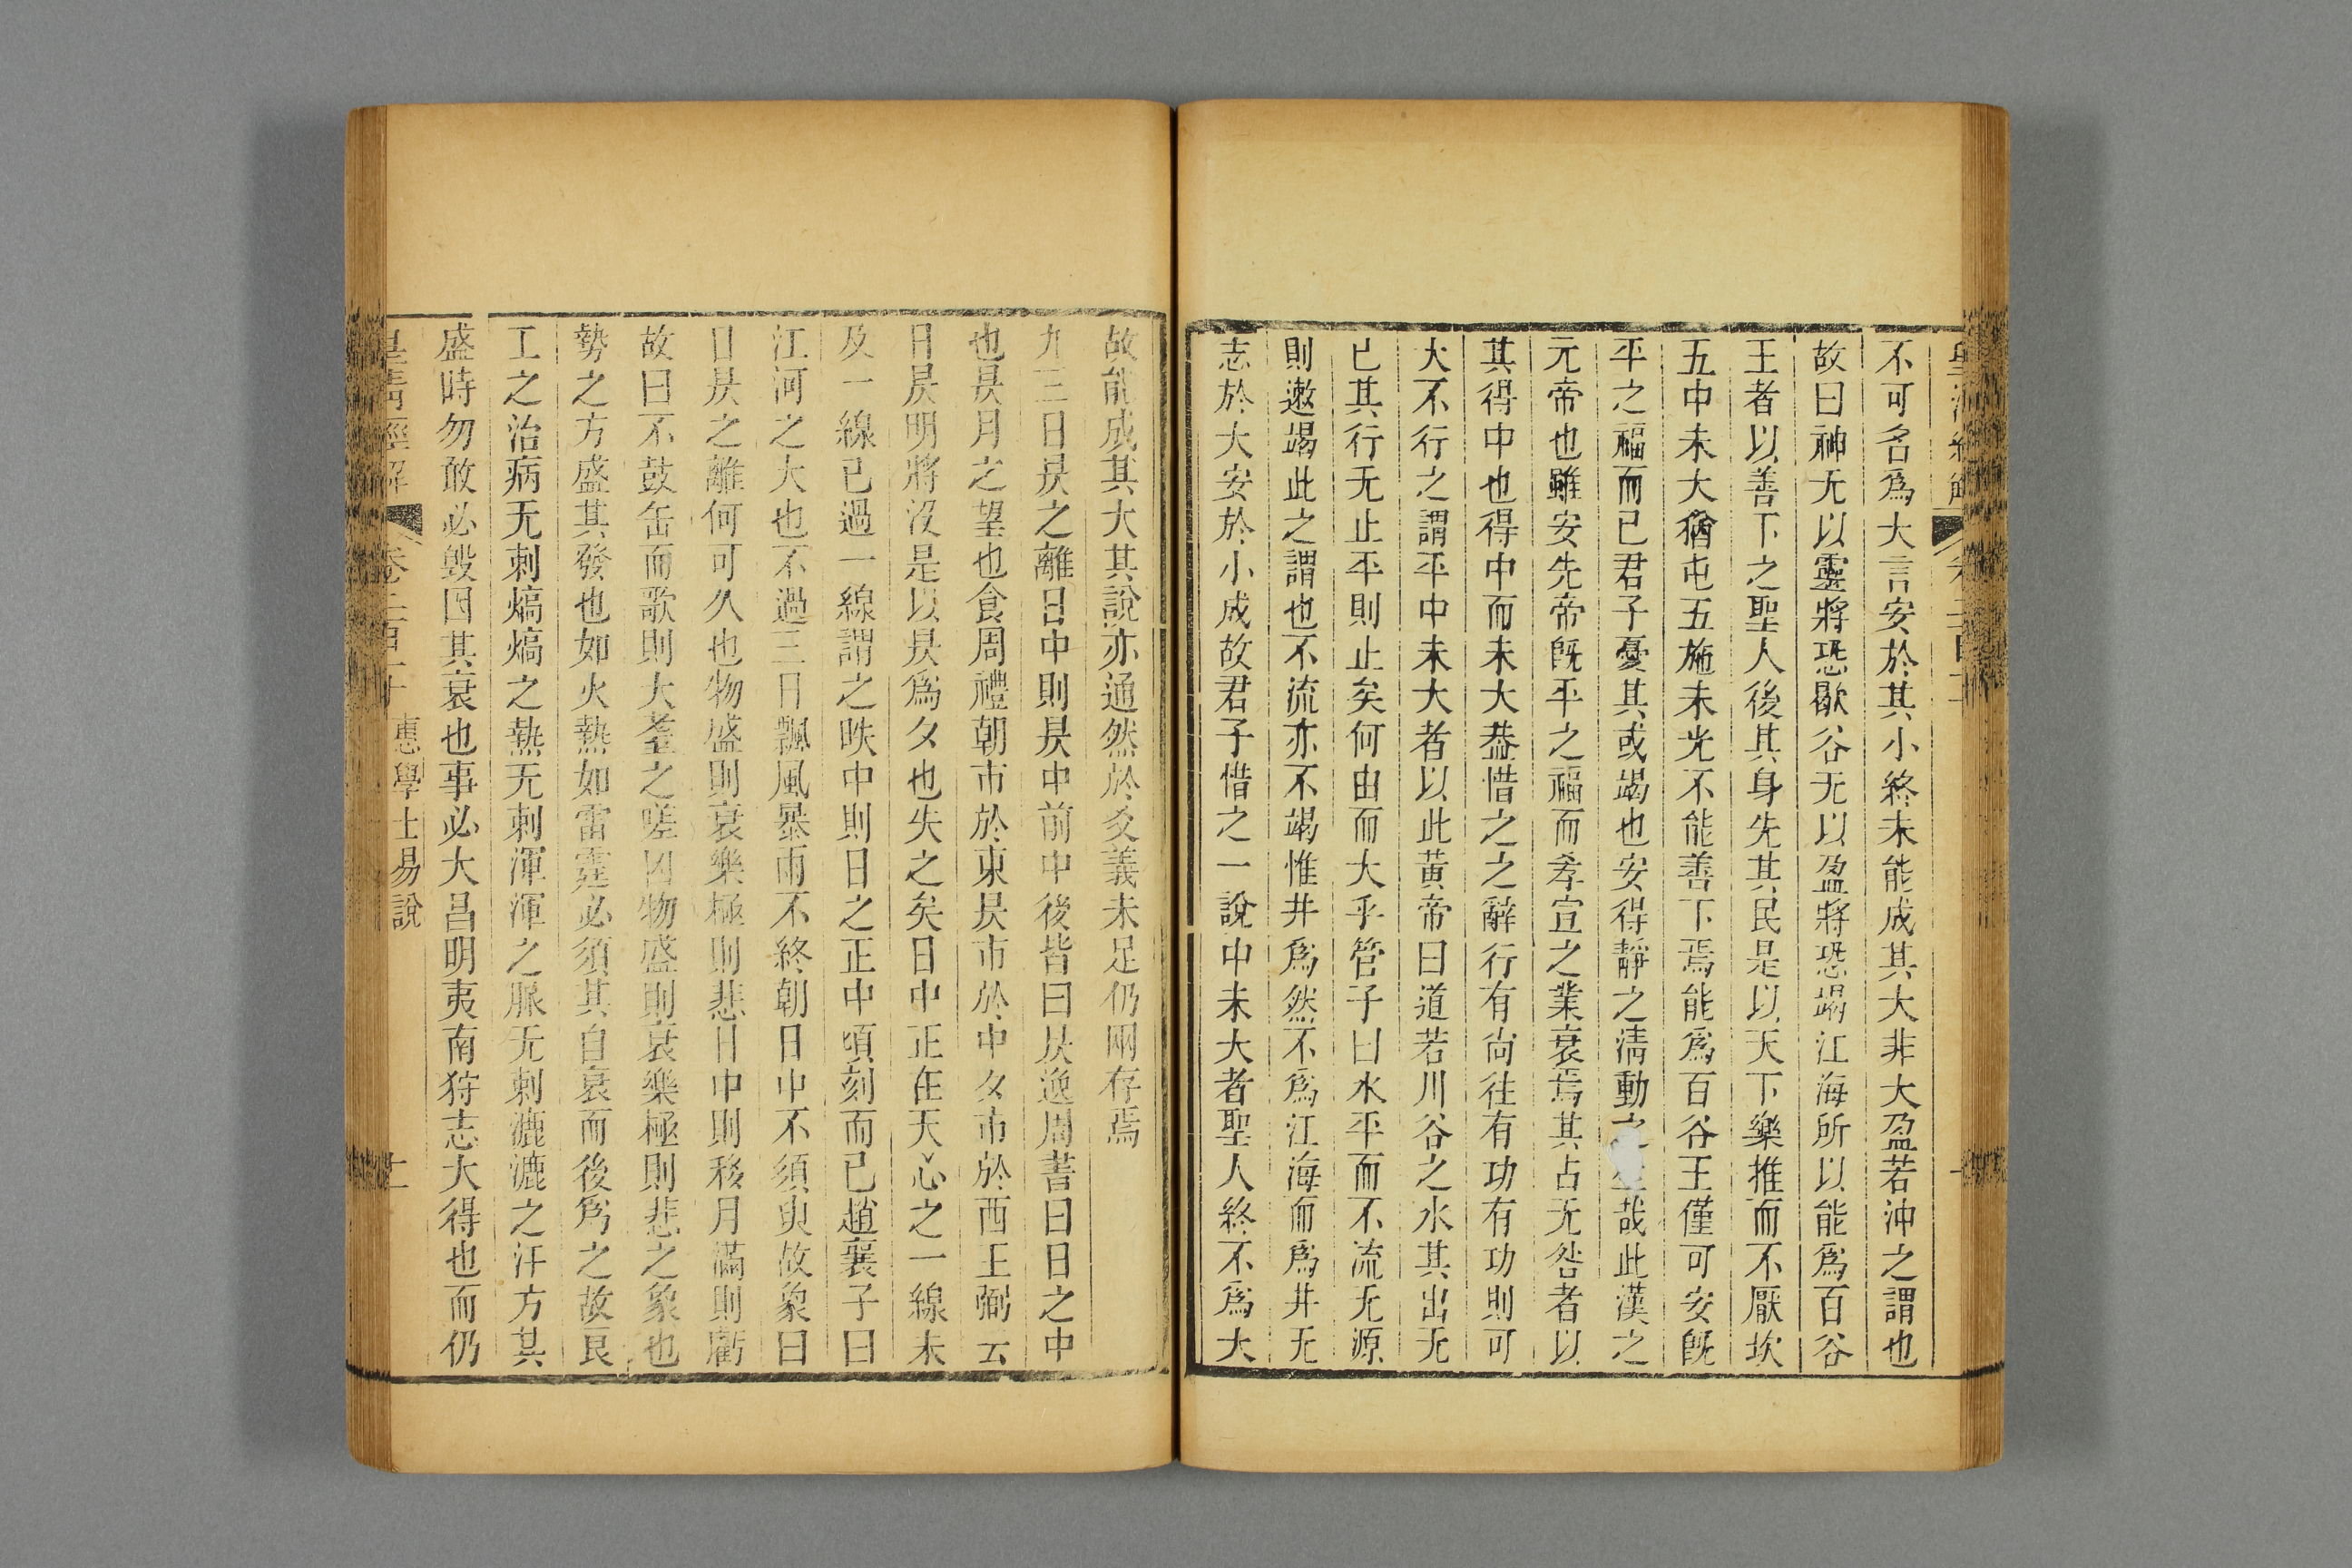 不可名爲大言安於其小終未能成其大非大盈若沖之謂也
故曰神无以靈將恐歇谷无以盈將恐竭江海所以能爲百谷
王者以善下之聖人後其身先其民是以天下樂推而不厭坎
五中未大猶屯五施未光不能善下焉能爲百谷王僅可安旣
平之福而已君子憂其或竭也安得靜之淸動之生哉此漢之
元帝也雖安先帝旣平之福而孝宣之業衰焉其占无咎者以
其得中也得中而未大葢惜之之辭行有尙往有功有功則可
大不行之謂平中未大者以此黃帝曰道若川谷之水其出无
已其行无止平則止矣何由而大乎管子曰水平而不流无源
則遬竭此之謂也不流亦不竭惟井爲然不爲江海而爲井无
志於大安於小成故君子惜之一說中未大者聖人終不爲大
故能成其大其說亦通然於爻義未足仍兩存焉
九三日昃之離日中則昃中前中後皆曰昃逸周書曰日之中
也昃月之望也食周禮朝市於東昃市於中夕市於西王弼云
日昃明將沒是以昃爲夕也失之矣日中正在天心之一線未
及一線已過一線謂之昳中則日之正中頃刻而已趙襄子曰
江河之大也不過三日飄風暴雨不終朝日中不須臾故象曰
日昃之離何可久也物盛則衰樂極則悲日中則移月滿則虧
故曰不鼓缶而歌則大耋之嗟凶物盛則衰樂極則悲之象也
勢之方盛其發也如火熱如雷霆必須其自衰而後爲之故良
工之治病无刺熇熇之熱无刺渾渾之脈无刺漉漉之汗方其
盛時勿敢必毀因其衰也事必大昌明夷南狩志大得也而仍
皇淸經解 卷二百十 惠學士易說 十一